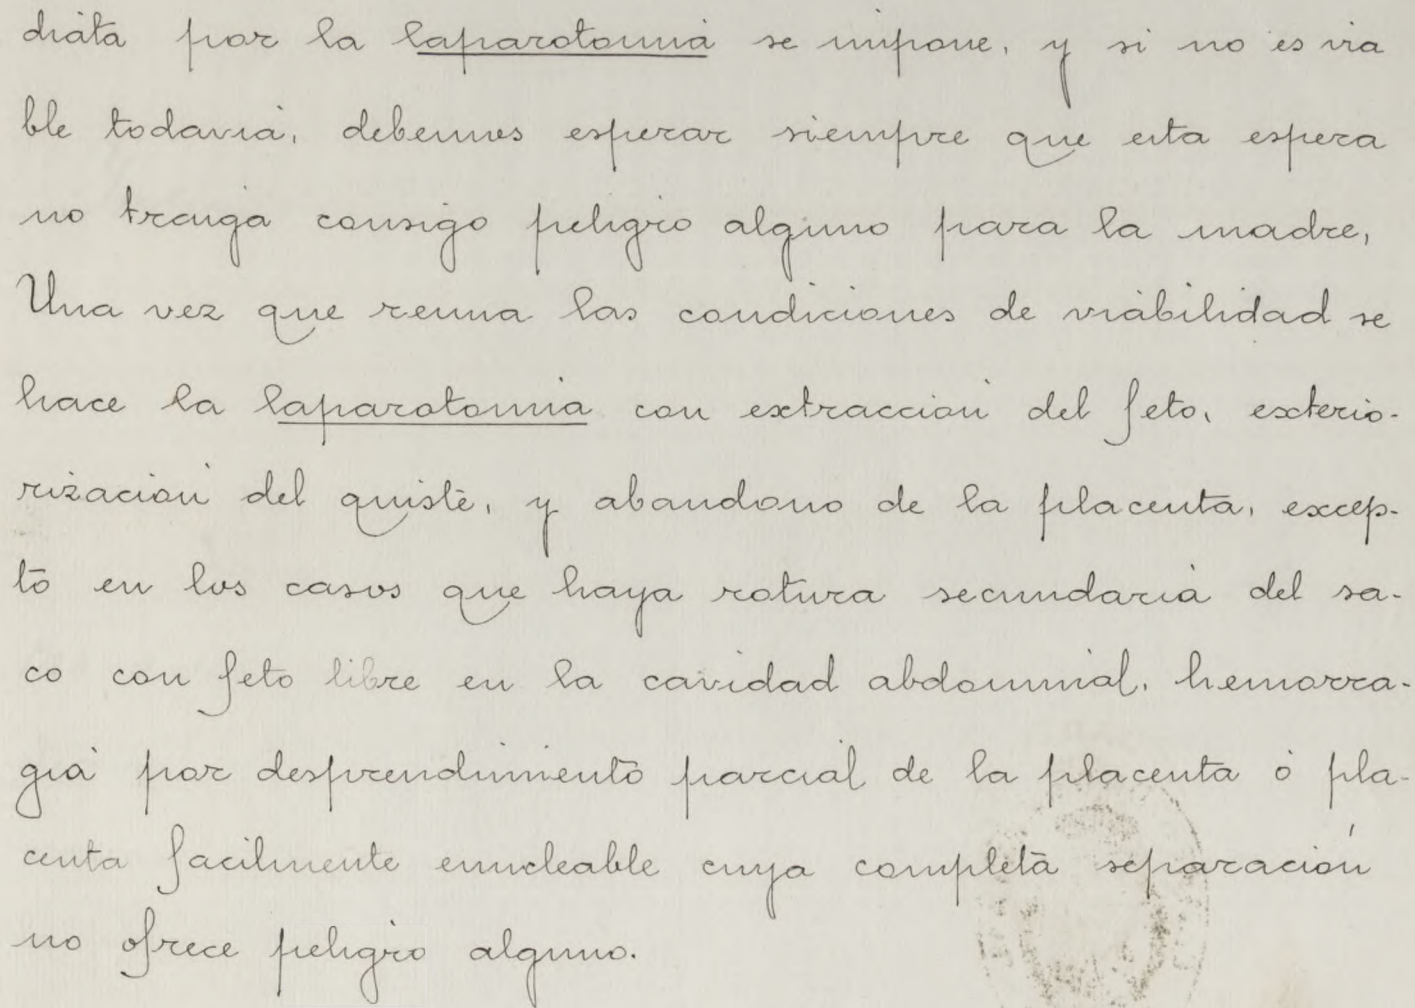 diata por la laparotomia se impone, y si no es via
ble todavia, debemos esperar siempre que esta espera
no traiga consigo peligro alguno para la madre,
Una vez que reuna las condiciones de viabilidad se
hace la laparotomia con extraccion del feto, exterio-
rización del quiste, y abandono de la placenta, excep-
to en los casos que haya rotura secundaria del sa-
co con feto libre en la cavidad abdominal, hemorra-
gia por desprendimiento parcial de la placenta ó pla-
centa facilmente enucleable cuya completa separación
no ofrece peligro alguno.